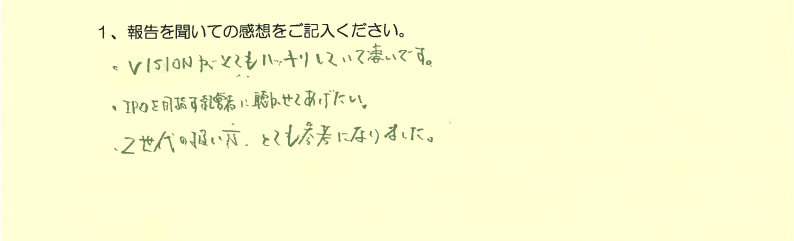 1、報告を聞いての感想をご記入ください。
・VISIONがとてもハッキリしていて凄いです。
・IPOを目指す経営者に聴かせてあげたい。
・Z世代の扱い方、とても参考になりました。